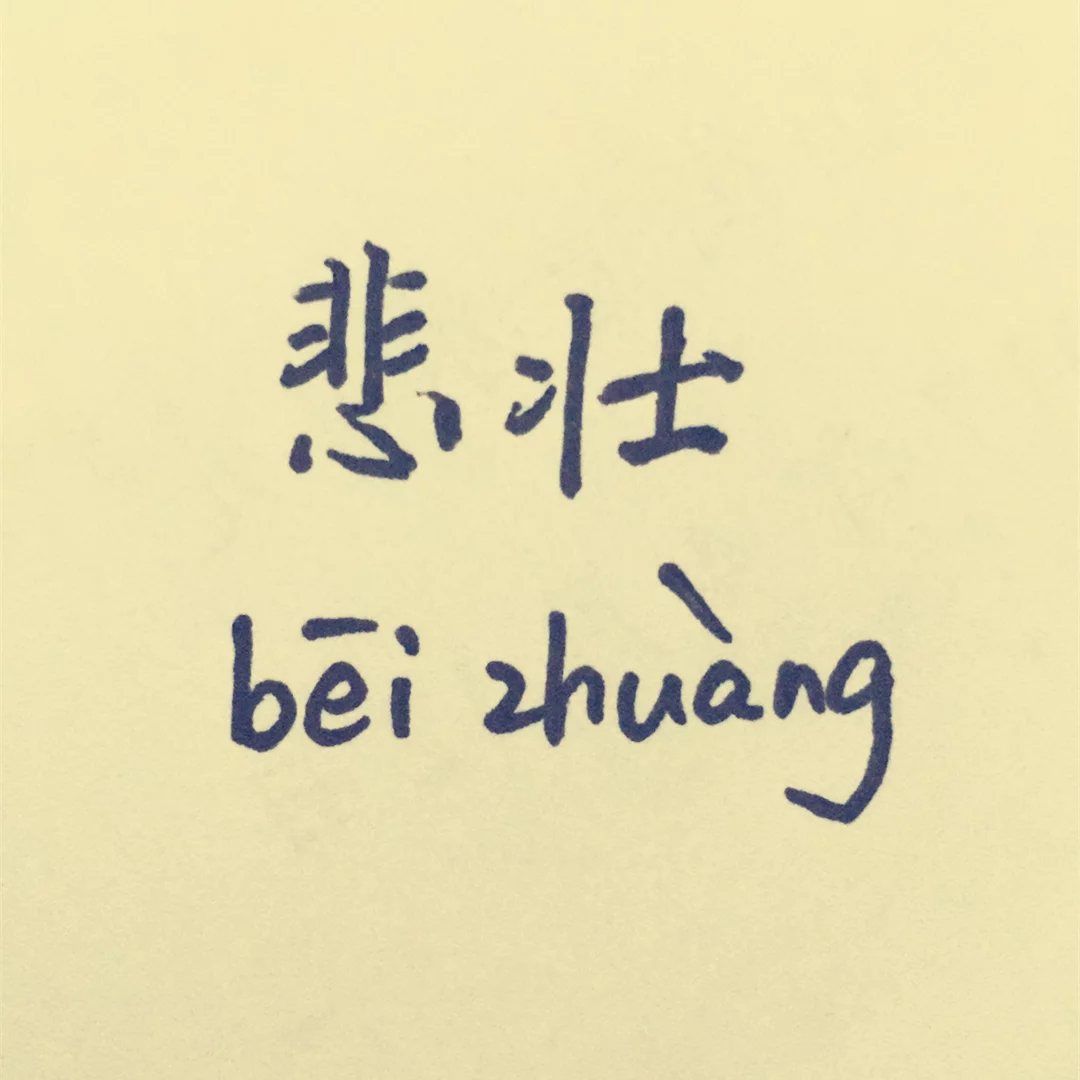 悲壮
bēi zhuàng